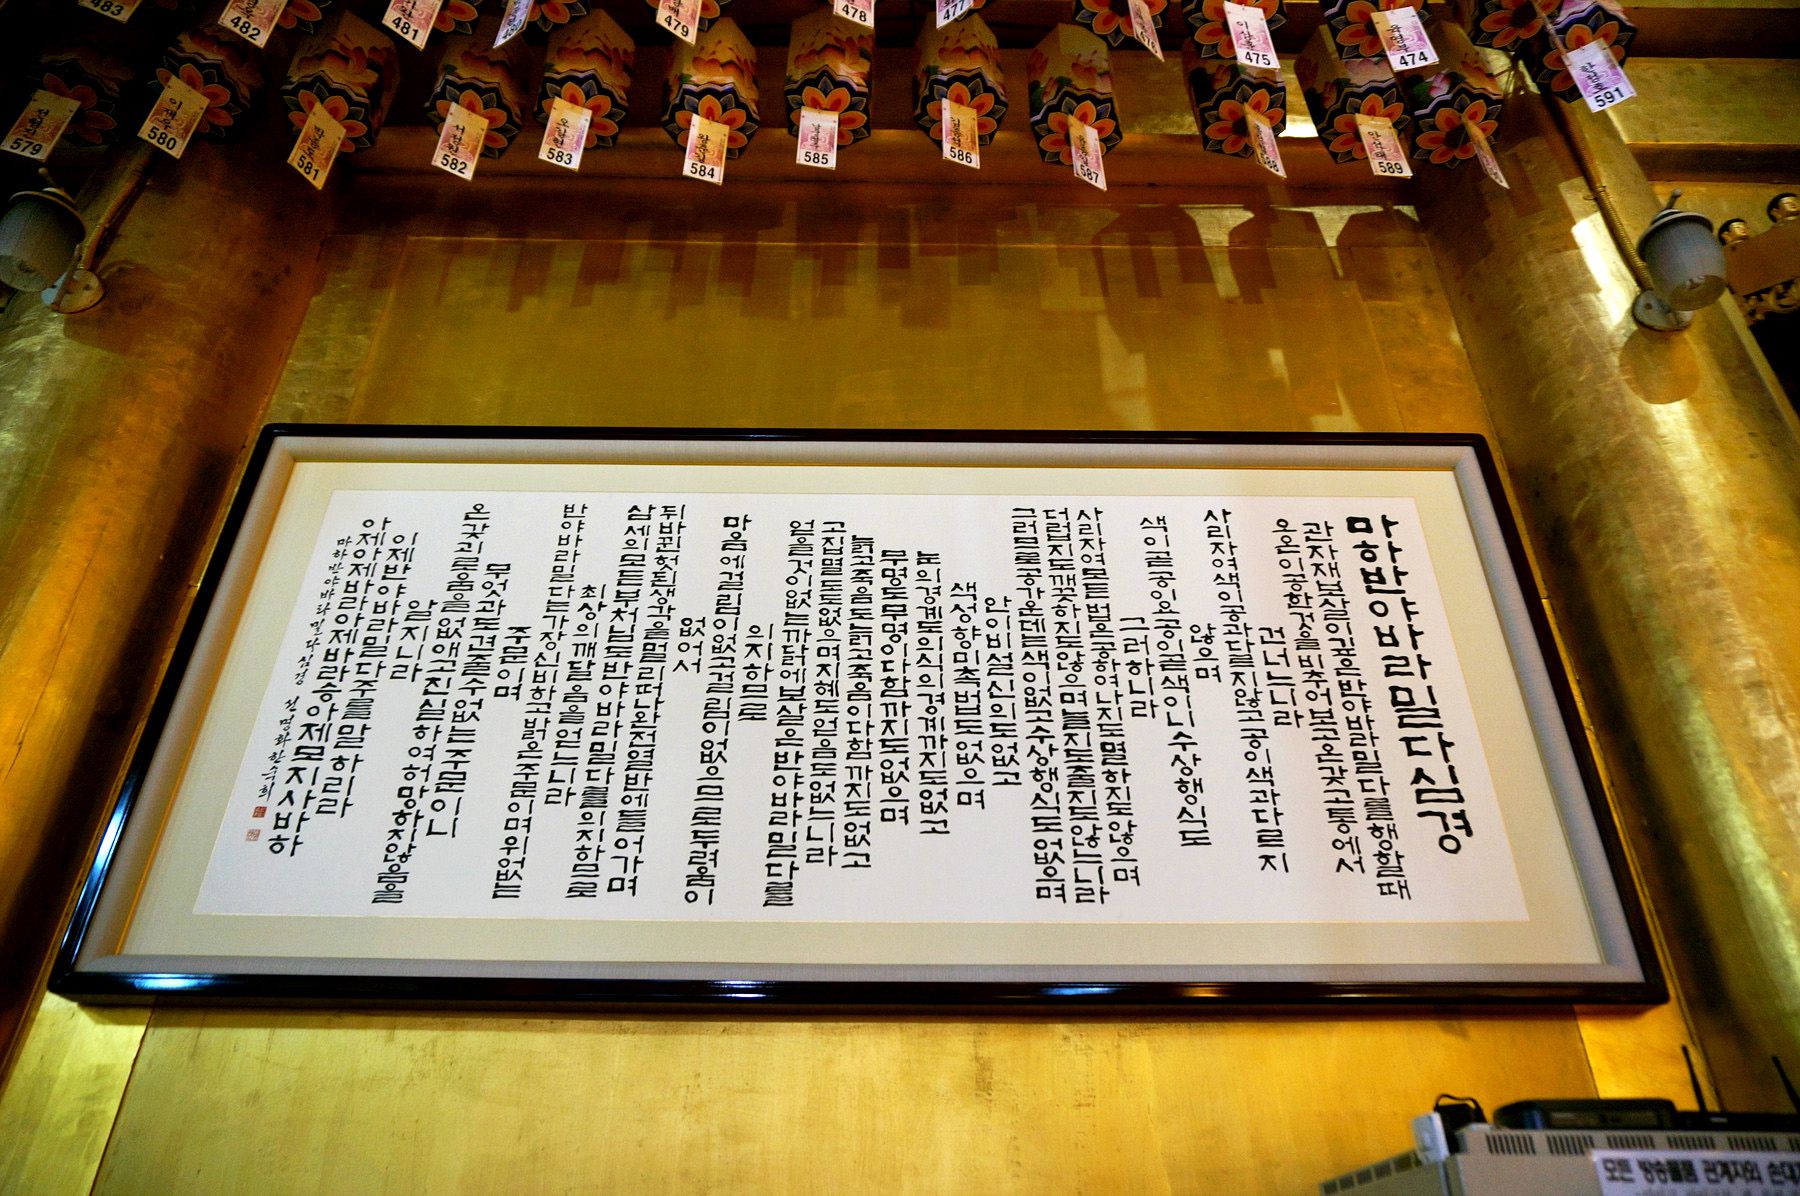 483
482
481
480
479
478
477
476
이상호
475
474
591
579
이재동
580
581
582
583
584
585
586
587
588
안석태
589
마하반야바라밀다심경
관자재보살이깊은반야바라밀다를행할때
오온이공한것을비추어보고온갖고통에서
건너느니라
사리자여색이공과다르지않고공이색과다르지
않으며
색이곧공이요공이곧색이니수상행식도
그러하니라
사리자여모든법은공하여나지도멸하지도않으며
더럽지도깨끗하지도않으며늘지도줄지도않느니라
그러므로공가운데는색이없고수상행식도없으며
안이비설신의도없고
색성향미촉법도없으며
눈의경계도의식의경계까지도없고
무명도무명이다함까지도없으며
늙고죽음도늙고죽음이다함까지도없고
고집멸도도없으며지혜도얻음도없느니라
얻을것이없는까닭에보살은반야바라밀다를
의지하므로
마음에걸림이없고걸림이없으므로두려움이
없어서
뒤바뀐헛된생각을멀리떠나완전열반에들어가며
삼세의모든부처님도반야바라밀다를의지하므로
최상의깨달음을얻느니라
반야바라밀다는가장신비하고밝은주문이며위없는
주문이며
무엇과도견줄수없는주문이니
온갖괴로움을없애고진실하여허망하지않음을
알지니라
이제반야바라밀다주를말하리라
아제아제바라아제바라승아제모지사바하
마하반야바라밀다심경 진명화 한숙희
모든 방송물품 관계자외 손대